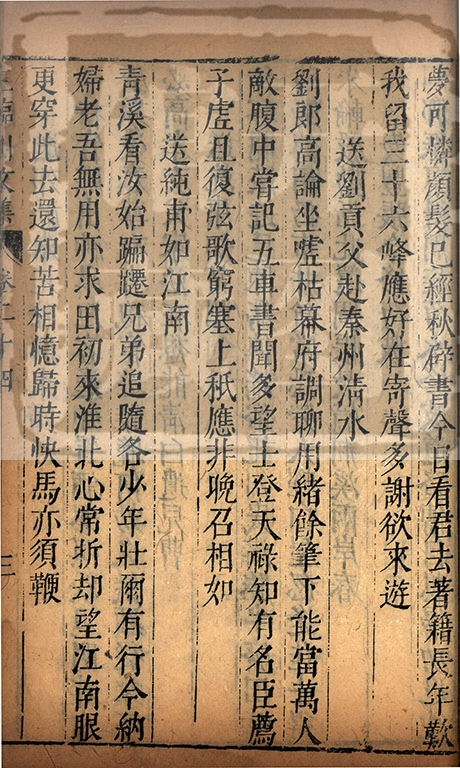 夢可憐顏髮已經秋辟書今日看君去著籍長年歎
我留三十六峰應好在寄聲多謝欲來遊
送劉貢父赴秦州清水
劉郎高論坐噓枯幕府調聊用緒餘筆下能當萬人
敵腹中嘗記五車書聞多望士登天祿知有名臣薦
子虛且復弦歌窮塞上祇應非晚召相如
送純甫如江南
青溪看汝始蹁躚兄弟追隨各少年壯爾有行今納
婦老吾無用亦求田初來淮北心常折却望江南眼
更穿此去還知苦相憶歸時快馬亦須鞭
王臨川文集 卷二十四 三